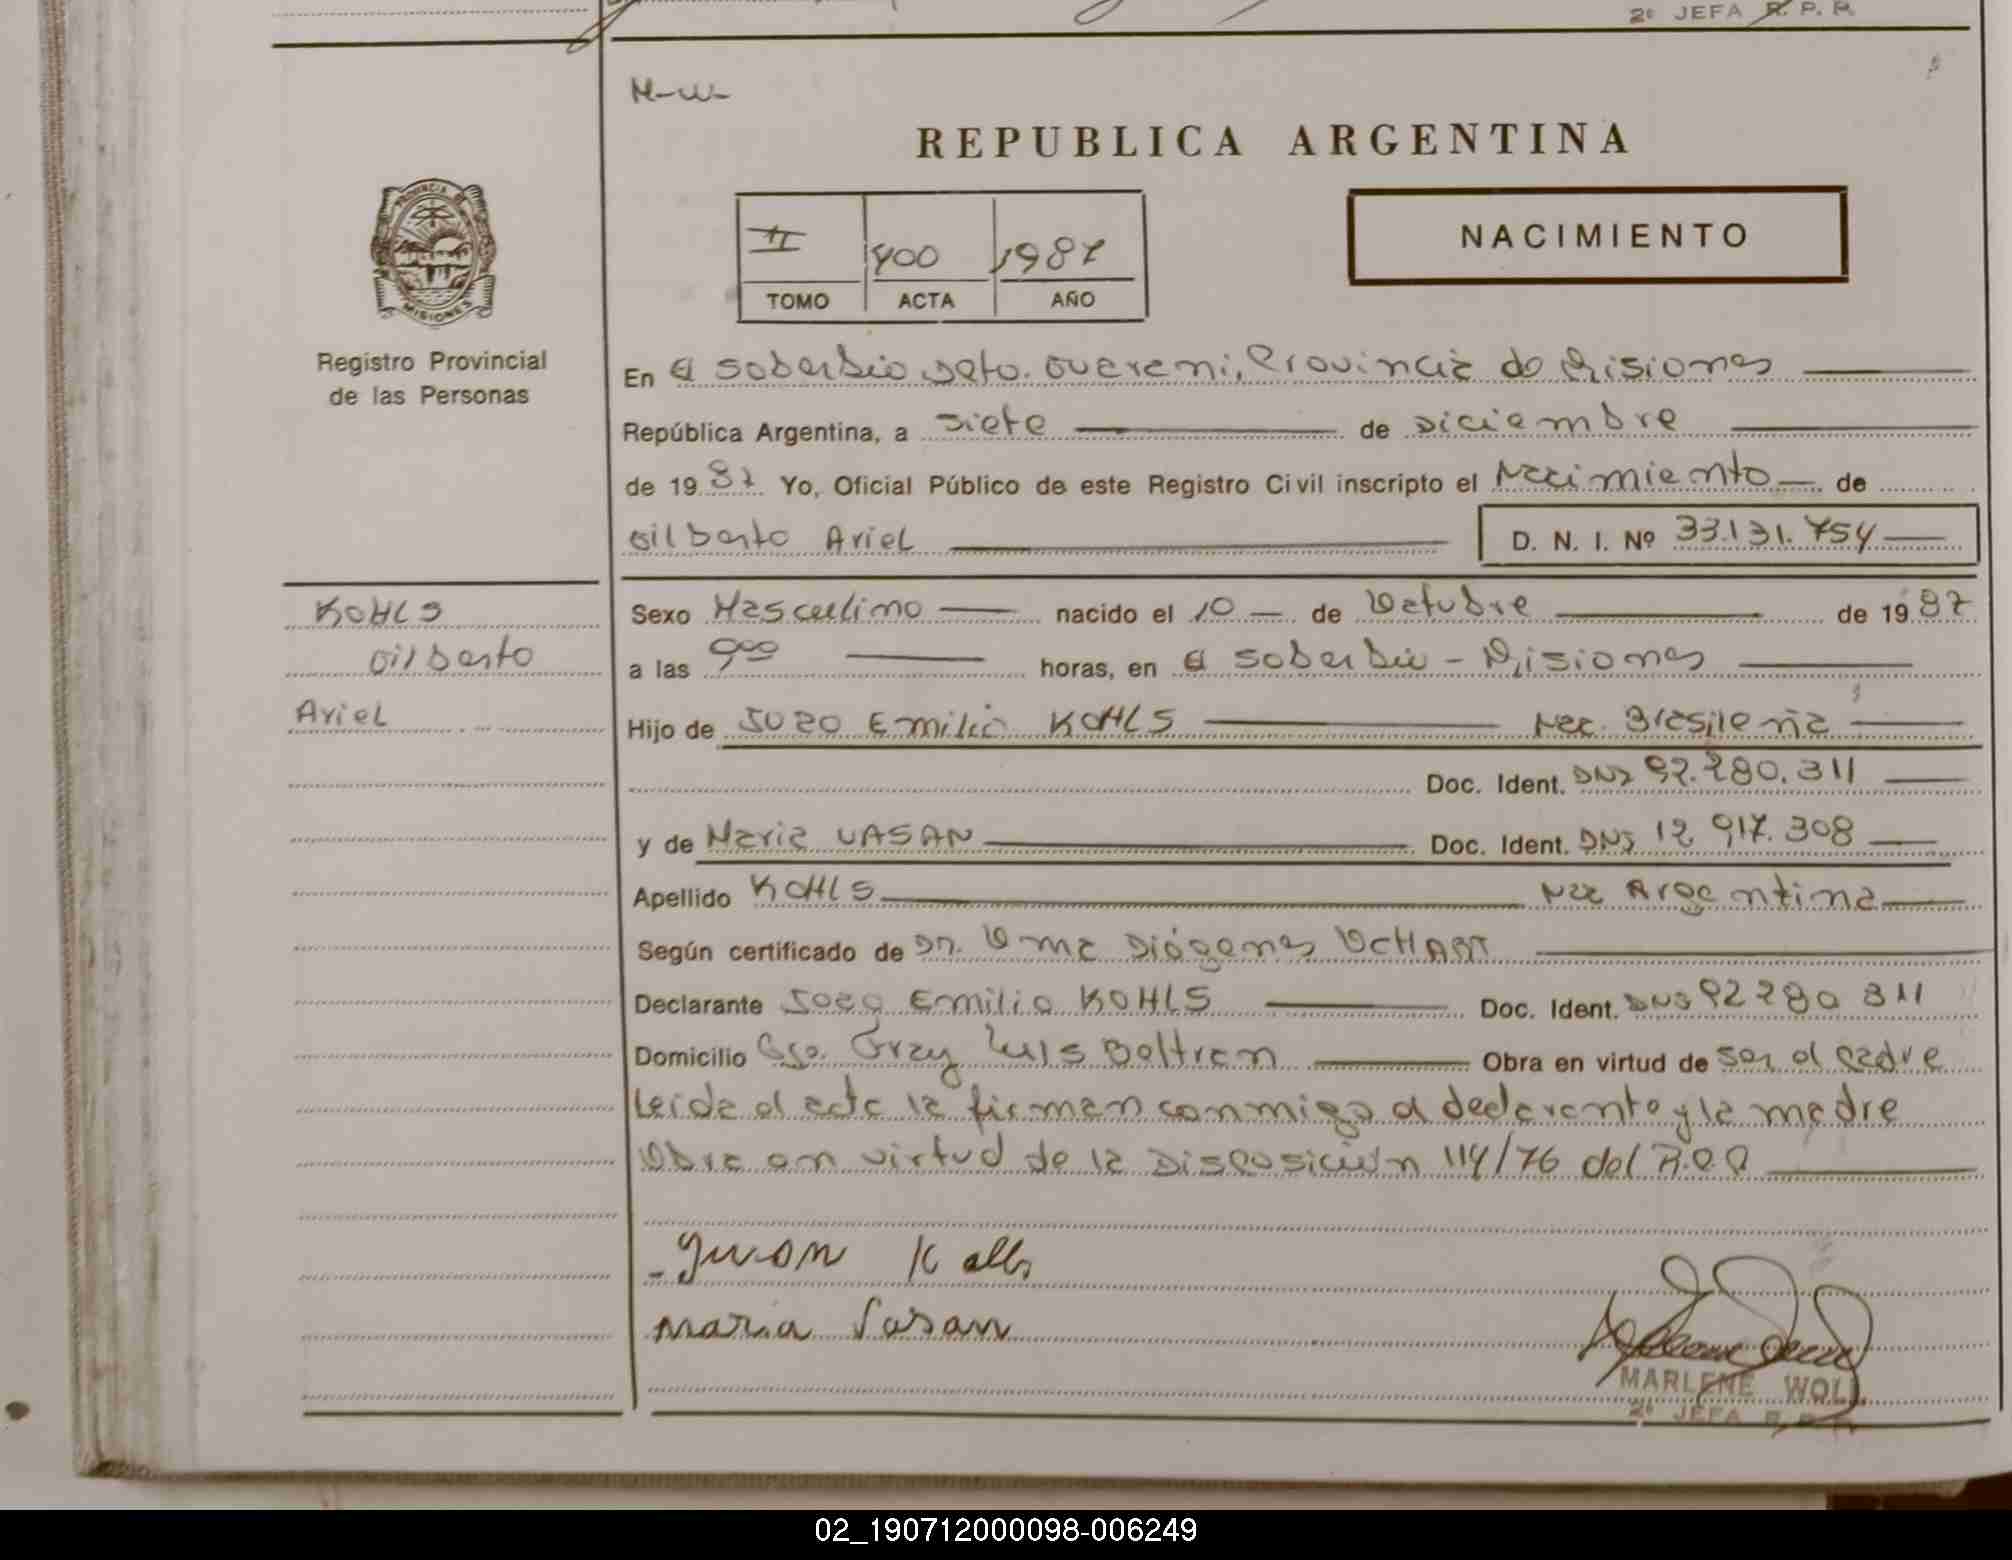 2º JEFA R. P. P.
M-W-
REPUBLICA ARGENTINA
NACIMIENTO
II 400 1987
TOMO ACTA AÑO
PROVINCIA DE
MISIONES
Registro Provincial
de las Personas
En El Soberbio Dpto. Guarani, Provincia de Misiones
República Argentina, a Siete de Diciembre
de 1987 Yo, Oficial Público de este Registro Civil inscripto el Nacimiento de
Gilberto Ariel D. N. I. Nº 33.131.754
KOHLS
Gilberto
Ariel
Sexo Masculino nacido el 10 de Octubre de 1987
a las 9 00 horas, en El Soberbio - Misiones
Hijo de Joao Emilio KOHLS Nac. Brasileña
Doc. Ident. DNI 92.280.311
y de Maria VASAN Doc. Ident. DNI 12.917.308
Apellido KOHLS Nac Argentina
Según certificado de Dr. Diógenes
Declarante Joao Emilio KOHLS Doc. Ident. DNI 92 280 311
Domicilio Fray Luis Beltran Obra en virtud de ser el padre
Leida el acta la firman conmigo el declarante y la madre
Obra en virtud de la Disposición 114/76 del R.P.P
Maria Vasan
MARLENE WOLL
2º JEFA R. P. P.
02_190712000098-006249